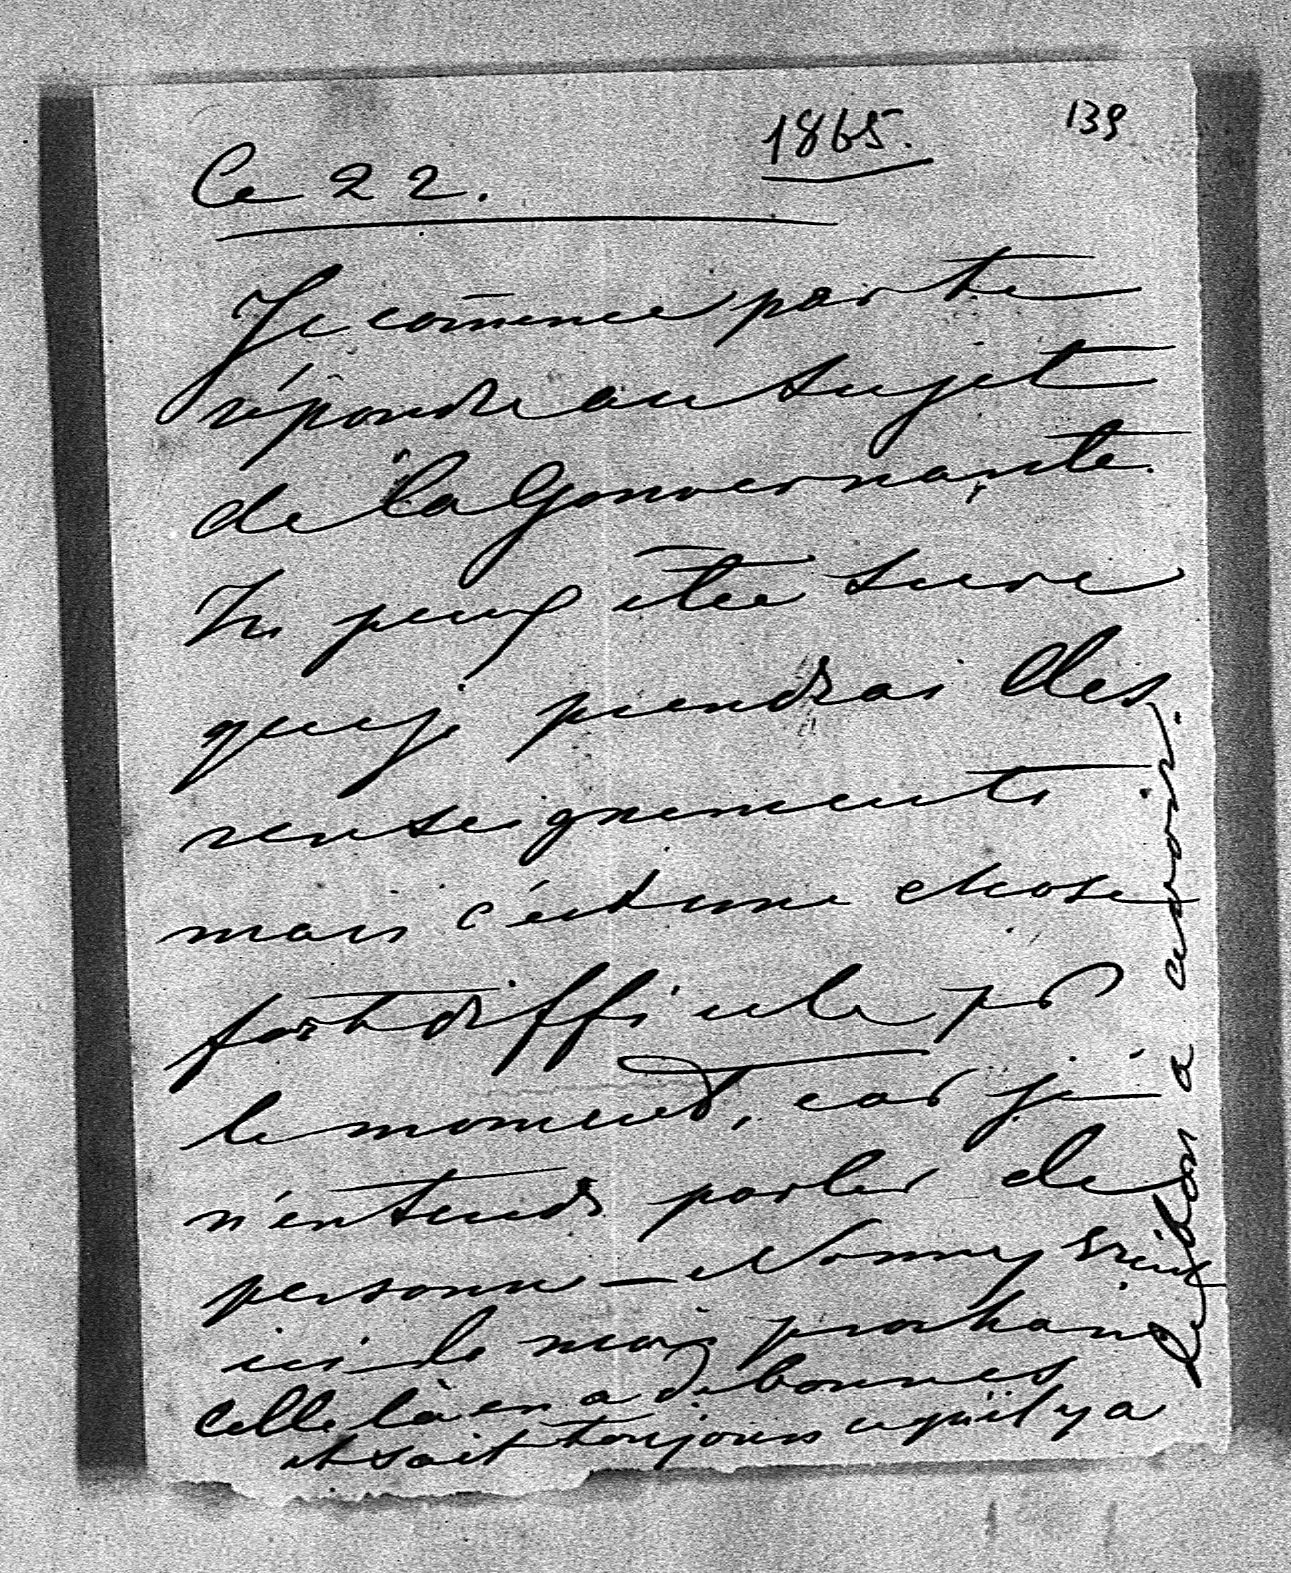 139
1865.
Ce 22.
Je com̄ence par te
répondre au sujet
de la Gouvernante.
Tu peux être sure
que je prendrai des
renseignements
mais c'est une chose
fort difficile pr
le moment, car je
n'entends parler de
personne — Nanny vient
ici le mois prochain
Celle là en a de bonnes
et sait toujours ce qu'il y a
de bon à avoir.